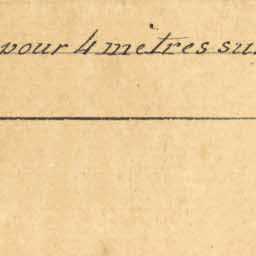 pour 4 mètres sur